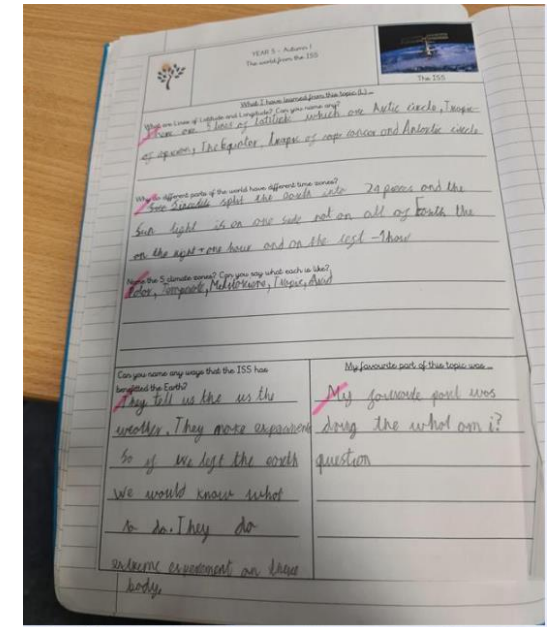 YEAR 5 - Autumn 1
The world from the ISS
The ISS
What I have learned from this topic (L) ...
What are Lines of Latitude and Longitude? Can you name any?
There are 5 lines of latitude which are Artic circle, Tropic
of capricorn, The Equator, tropic of cancer and Antartic circle
Why do different parts of the world have different time zones?
split the earth into 24 pieces and the
Sun light is on one side not on all of Earth the
on the right + one hour and on the left - 1 hour
Name the 5 climate zones? Can you say what each is like?
Polar, Temperate, Tropic, Arid
Can you name any ways that the ISS has
benefitted the Earth?
They tell us the us the
weather. They make
so if we left the earth
we would know what
to do. They do
extreme on there
body
My favourite part of this topic was ...
My favourite part was
doing the what am i?
question